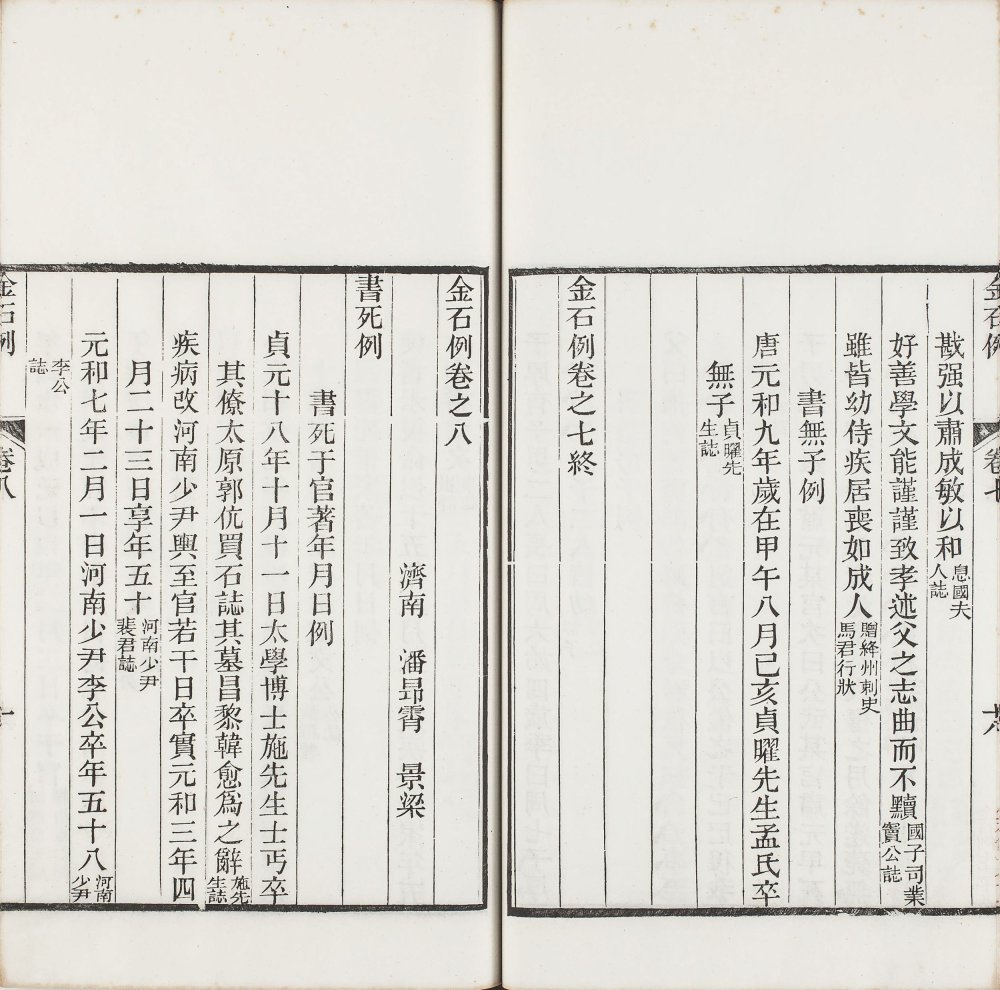 金石例
卷七
戡强以肅成敏以和息國夫人誌
好善學文能謹謹致孝述父之志曲而不黷國子司業竇公誌
雖皆幼侍疾居喪如成人贈絳州刺史馬君行狀
書無子例
唐元和九年歲在甲午八月己亥貞曜先生孟氏卒
無子貞曜先生誌
金石例卷之七終
金石例卷之八
濟南 潘昂霄 景梁
書死例
書死于官著年月日例
貞元十八年十月十一日太學博士施先生士丐卒
其僚太原郭伉買石誌其墓昌黎韓愈爲之辭施先生誌
疾病改河南少尹輿至官若干日卒實元和三年四
月二十三日享年五十河南少尹裴君誌
元和七年二月一日河南少尹李公卒年五十八河南少尹
李公誌
金石例
卷八